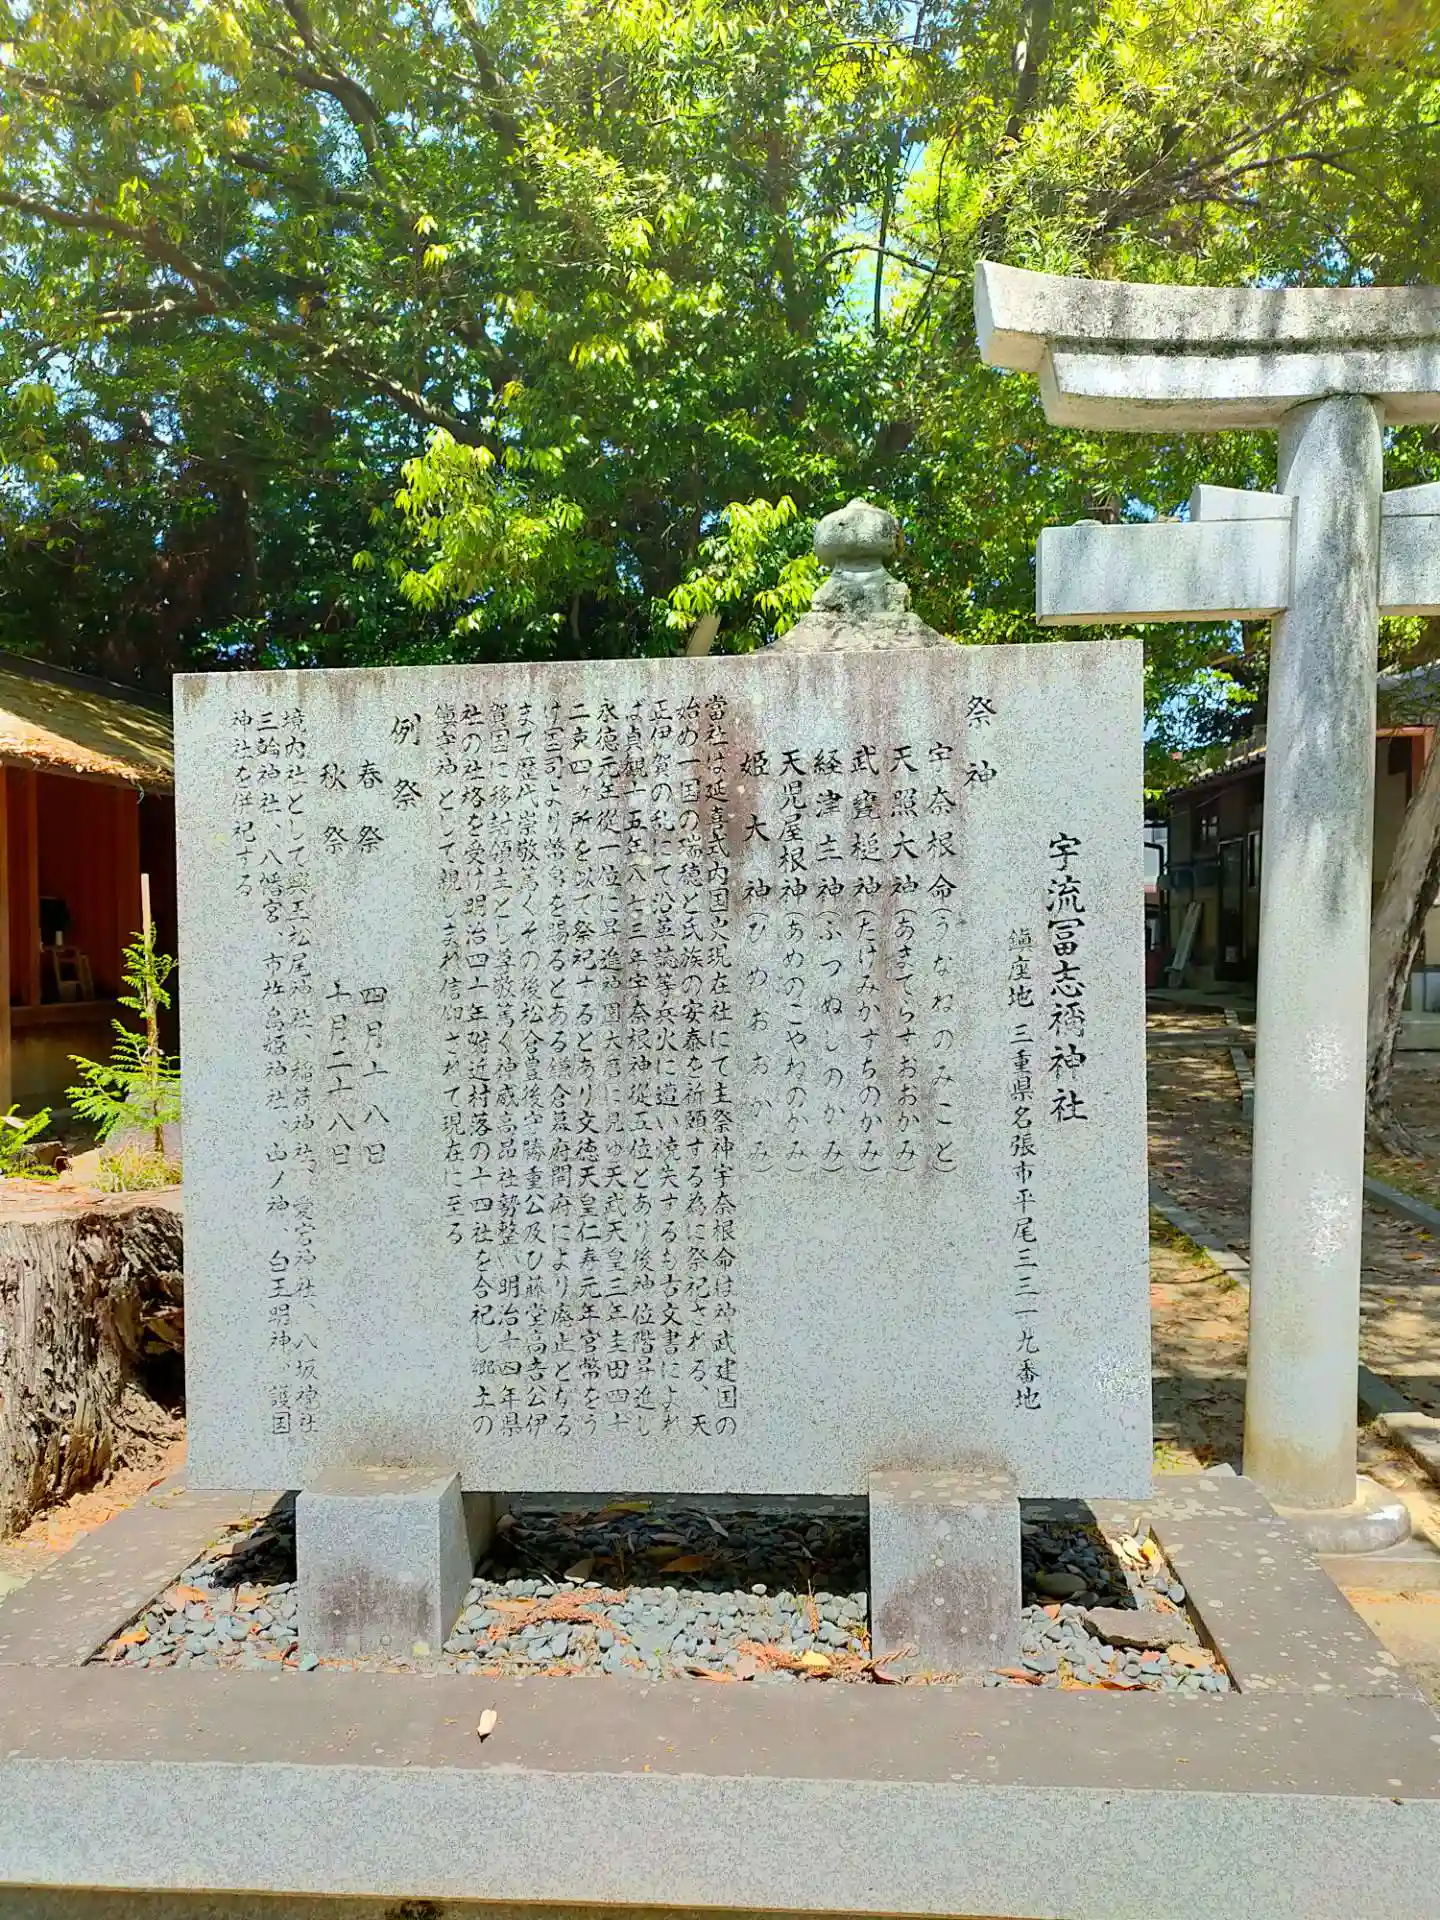 宇流冨志禰神社
鎮座地 三重県名張市平尾三三一九番地
祭神
宇奈根命(うなねのみこと)
天照大神(あまてらすおおかみ)
武甕槌神(たけみかずちのかみ)
経津主神(ふつぬしのかみ)
天児屋根神(あめのこやねのかみ)
姫大神(ひめおおかみ)
當社は延喜式内国史現在社にて主祭神宇奈根命は神武建国の
始め一国の瑞穂と氏族の安泰を祈願する為に祭祀される、天
正伊賀の乱にて沿革誌等兵火に遭い焼失するも古文書によれ
ば貞観十五年八七三年宇奈根神從五位とあり後神位階昇進し
永徳元年從一位に昇進神園大暦に見ゆ天武天皇三年圭田四十
二束四ヶ所を以て祭祀するとあり文徳天皇仁寿元年官幣をう
け国司より幣帛を賜るとある鎌倉幕府開府により廃止となる
まで歴代崇敬篤くその後松倉豊後守勝重公及び藤堂高吉公伊
賀国に移封領主とし尊敬篤く神威高昂社勢整い明治十四年県
社の社格を受け明治四十年附近村落の十四社を合祀し郷土の
鎮守神として親しまれ信仰されて現在に至る
例祭
春祭 四月十八日
秋祭 十月二十八日
境内社として興玉松尾神社、稲荷神社、愛宕神社、八坂神社
三輪神社、八幡宮、市杵島姫神社、山ノ神、白玉明神、護国
神社を併祀する